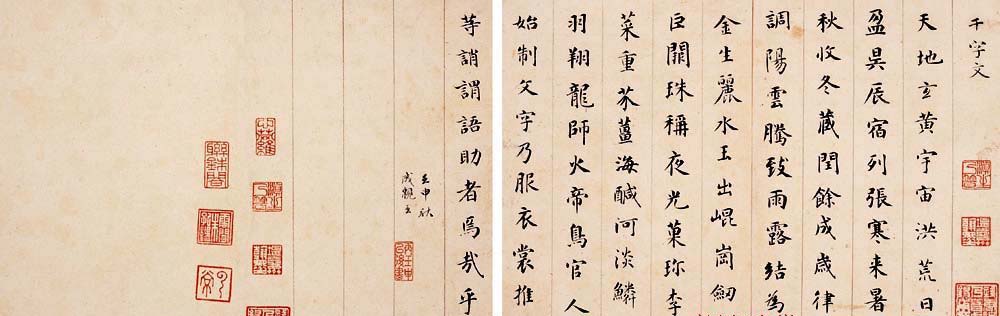 千字文
天地玄黃宇宙洪荒日
盈昃辰宿列張寒来暑
秋收冬藏閏餘成歲律
調陽雲騰致雨露結為
金生麗水玉出崐崗劒
巨闕珠稱夜光菓珎李
菜重芥薑海鹹河淡鱗
羽翔龍師火帝鳥官人
始制文字乃服衣裳推
等誚謂語助者焉哉乎
壬申秋
成親王